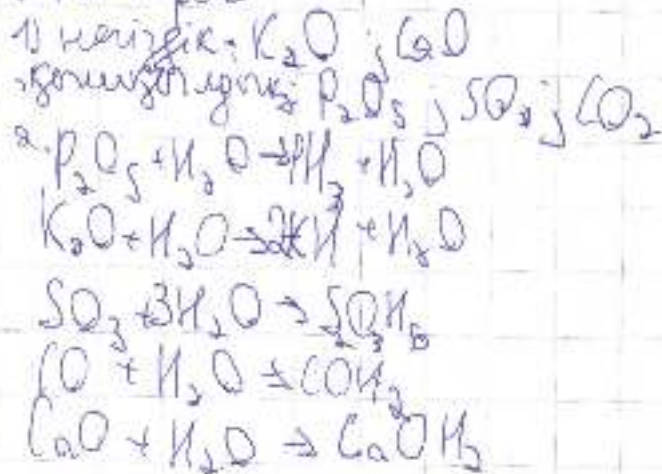 1) негіздік: K₂O ; CaO
P₂O₅ ; SO₃ ; CO₂
2. P₂O₅ + H₂O → 2PH₃ + H₂O
K₂O + H₂O → 2KH + H₂O
SO₃ + 3H₂O → S₂O₃H₆
CO + H₂O → COH₂
CaO + H₂O → CaOH₂